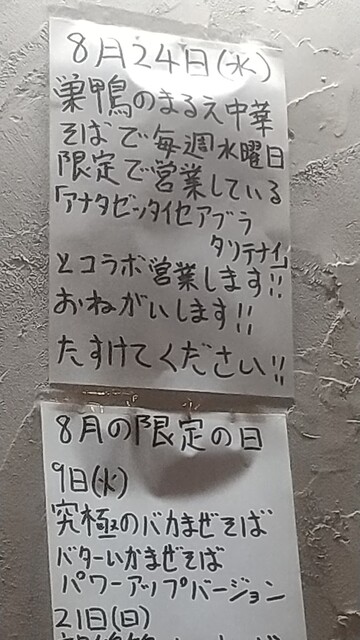 8月24日(水)
巣鴨のまるえ中華
そばで毎週水曜日
限定で営業している
「アナタゼンタイセアブラ
タリテナイ」
とコラボ営業します!!
おねがいします!!
たすけてください!!
8月の限定の日
9日(火)
究極のバカまぜそば
バターいかまぜそば
パワーアップバージョン
21日(日)